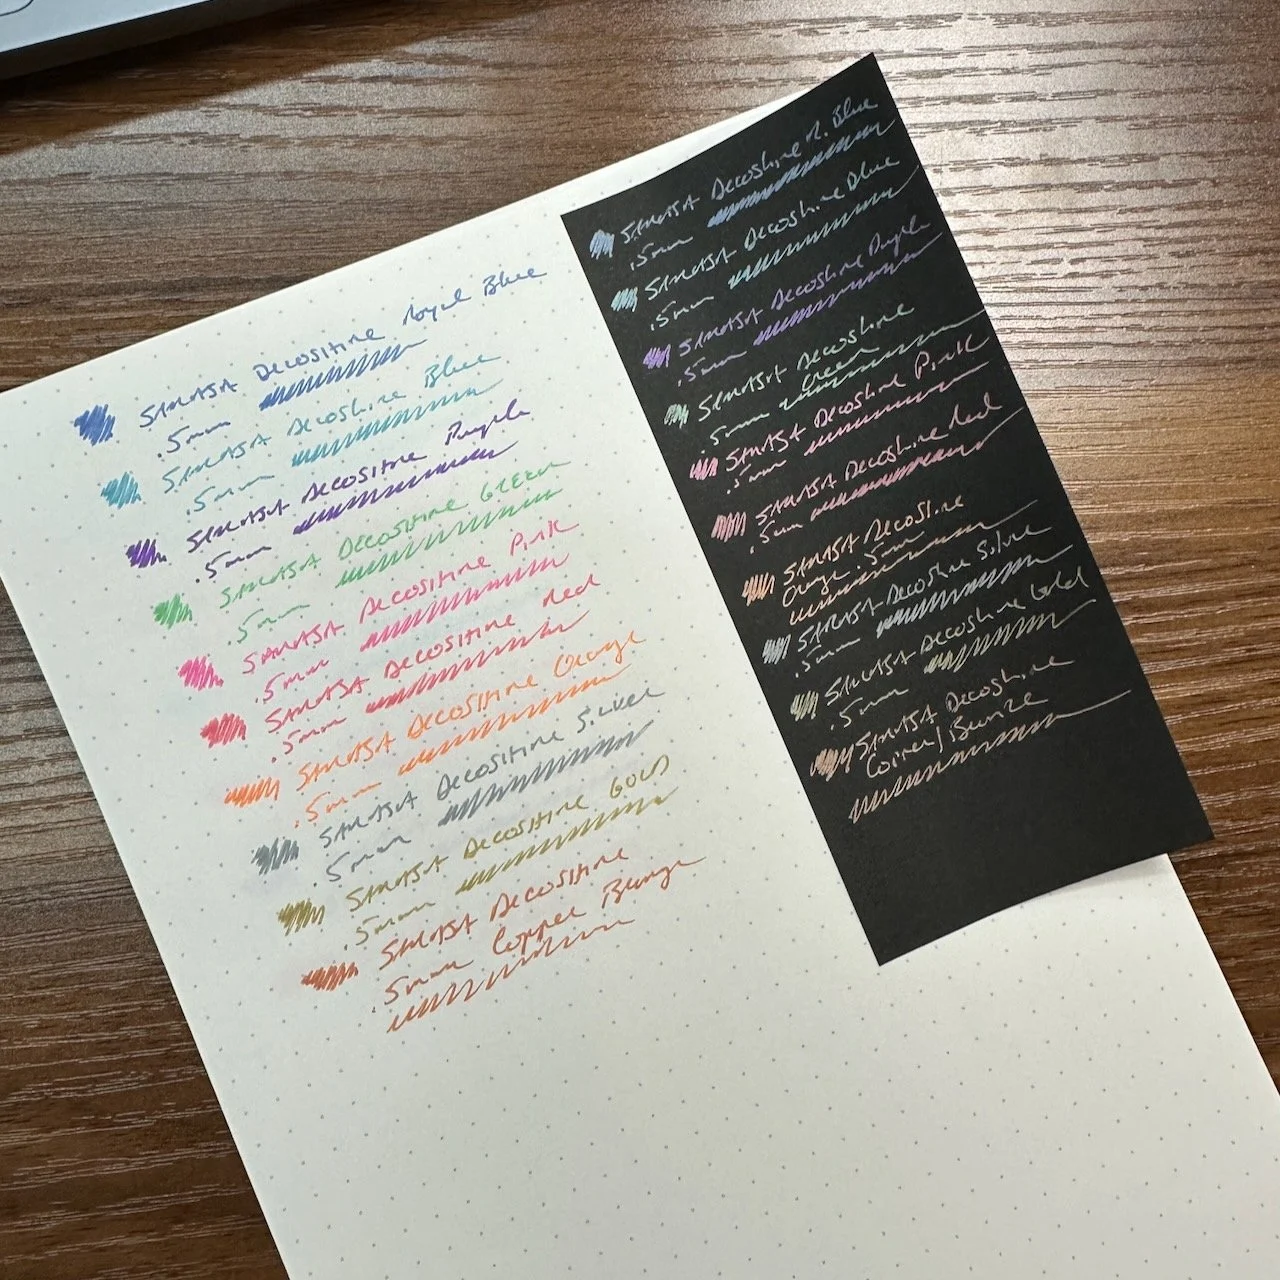 SARASA DECOSHINE Royal Blue
.5mm
SARASA DECOSHINE Blue
.5mm
SARASA DECOSHINE Purple
.5mm
SARASA DECOSHINE GREEN
.5mm
SARASA DECOSHINE Pink
.5mm
SARASA DECOSHINE Red
.5mm
SARASA DECOSHINE Orange
.5mm
SARASA DECOSHINE Silver
.5mm
SARASA DECOSHINE GOLD
.5mm
SARASA DECOSHINE
.5mm Copper
SARASA Decoshine R. Blue
.5mm
SARASA Decoshine Blue
.5mm
SARASA Decoshine Purple
.5mm
SARASA Decoshine
.5mm Green
SARASA Decoshine Pink
.5mm
SARASA Decoshine Red
.5mm
SARASA Decoshine
Orange .5mm
SARASA Decoshine Silver
.5mm
SARASA Decoshine Gold
.5mm
SARASA Decoshine
Copper/Bronze